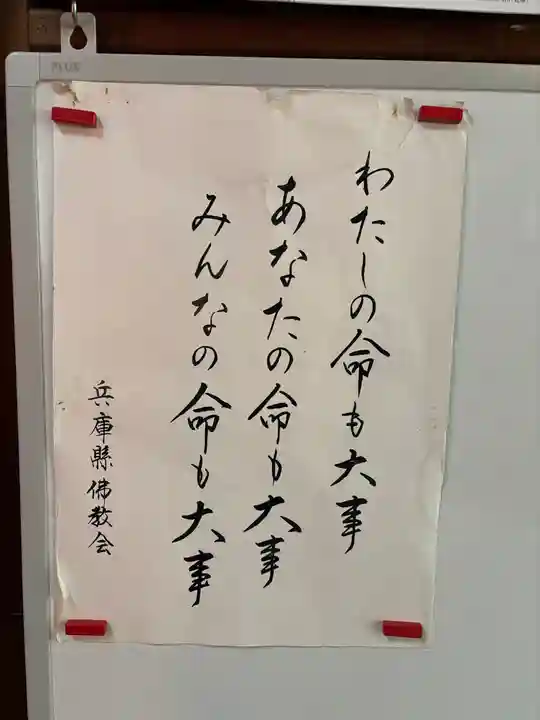 PLUS
わたしの命も大事
あなたの命も大事
みんなの命も大事
兵庫縣佛教会